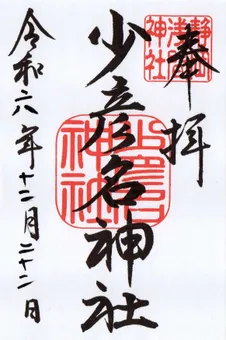 奉拝
少彦名神社
令和六年十二月二十二日
静岡浅間神社
少彦名神社